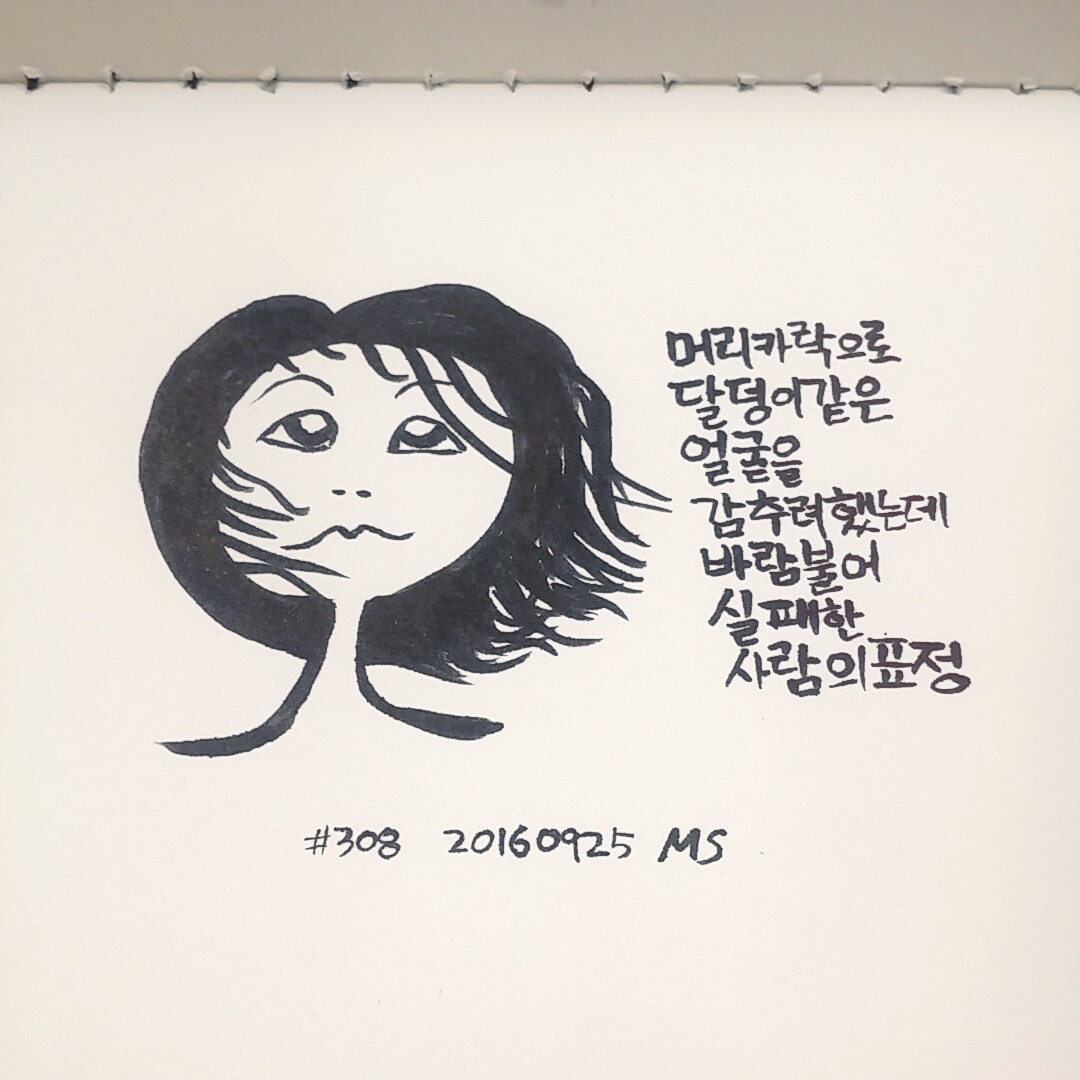 머리카락으로
달덩이같은
얼굴을
감추려했는데
바람불어
실패한
사람의표정
#308 20160925 MS